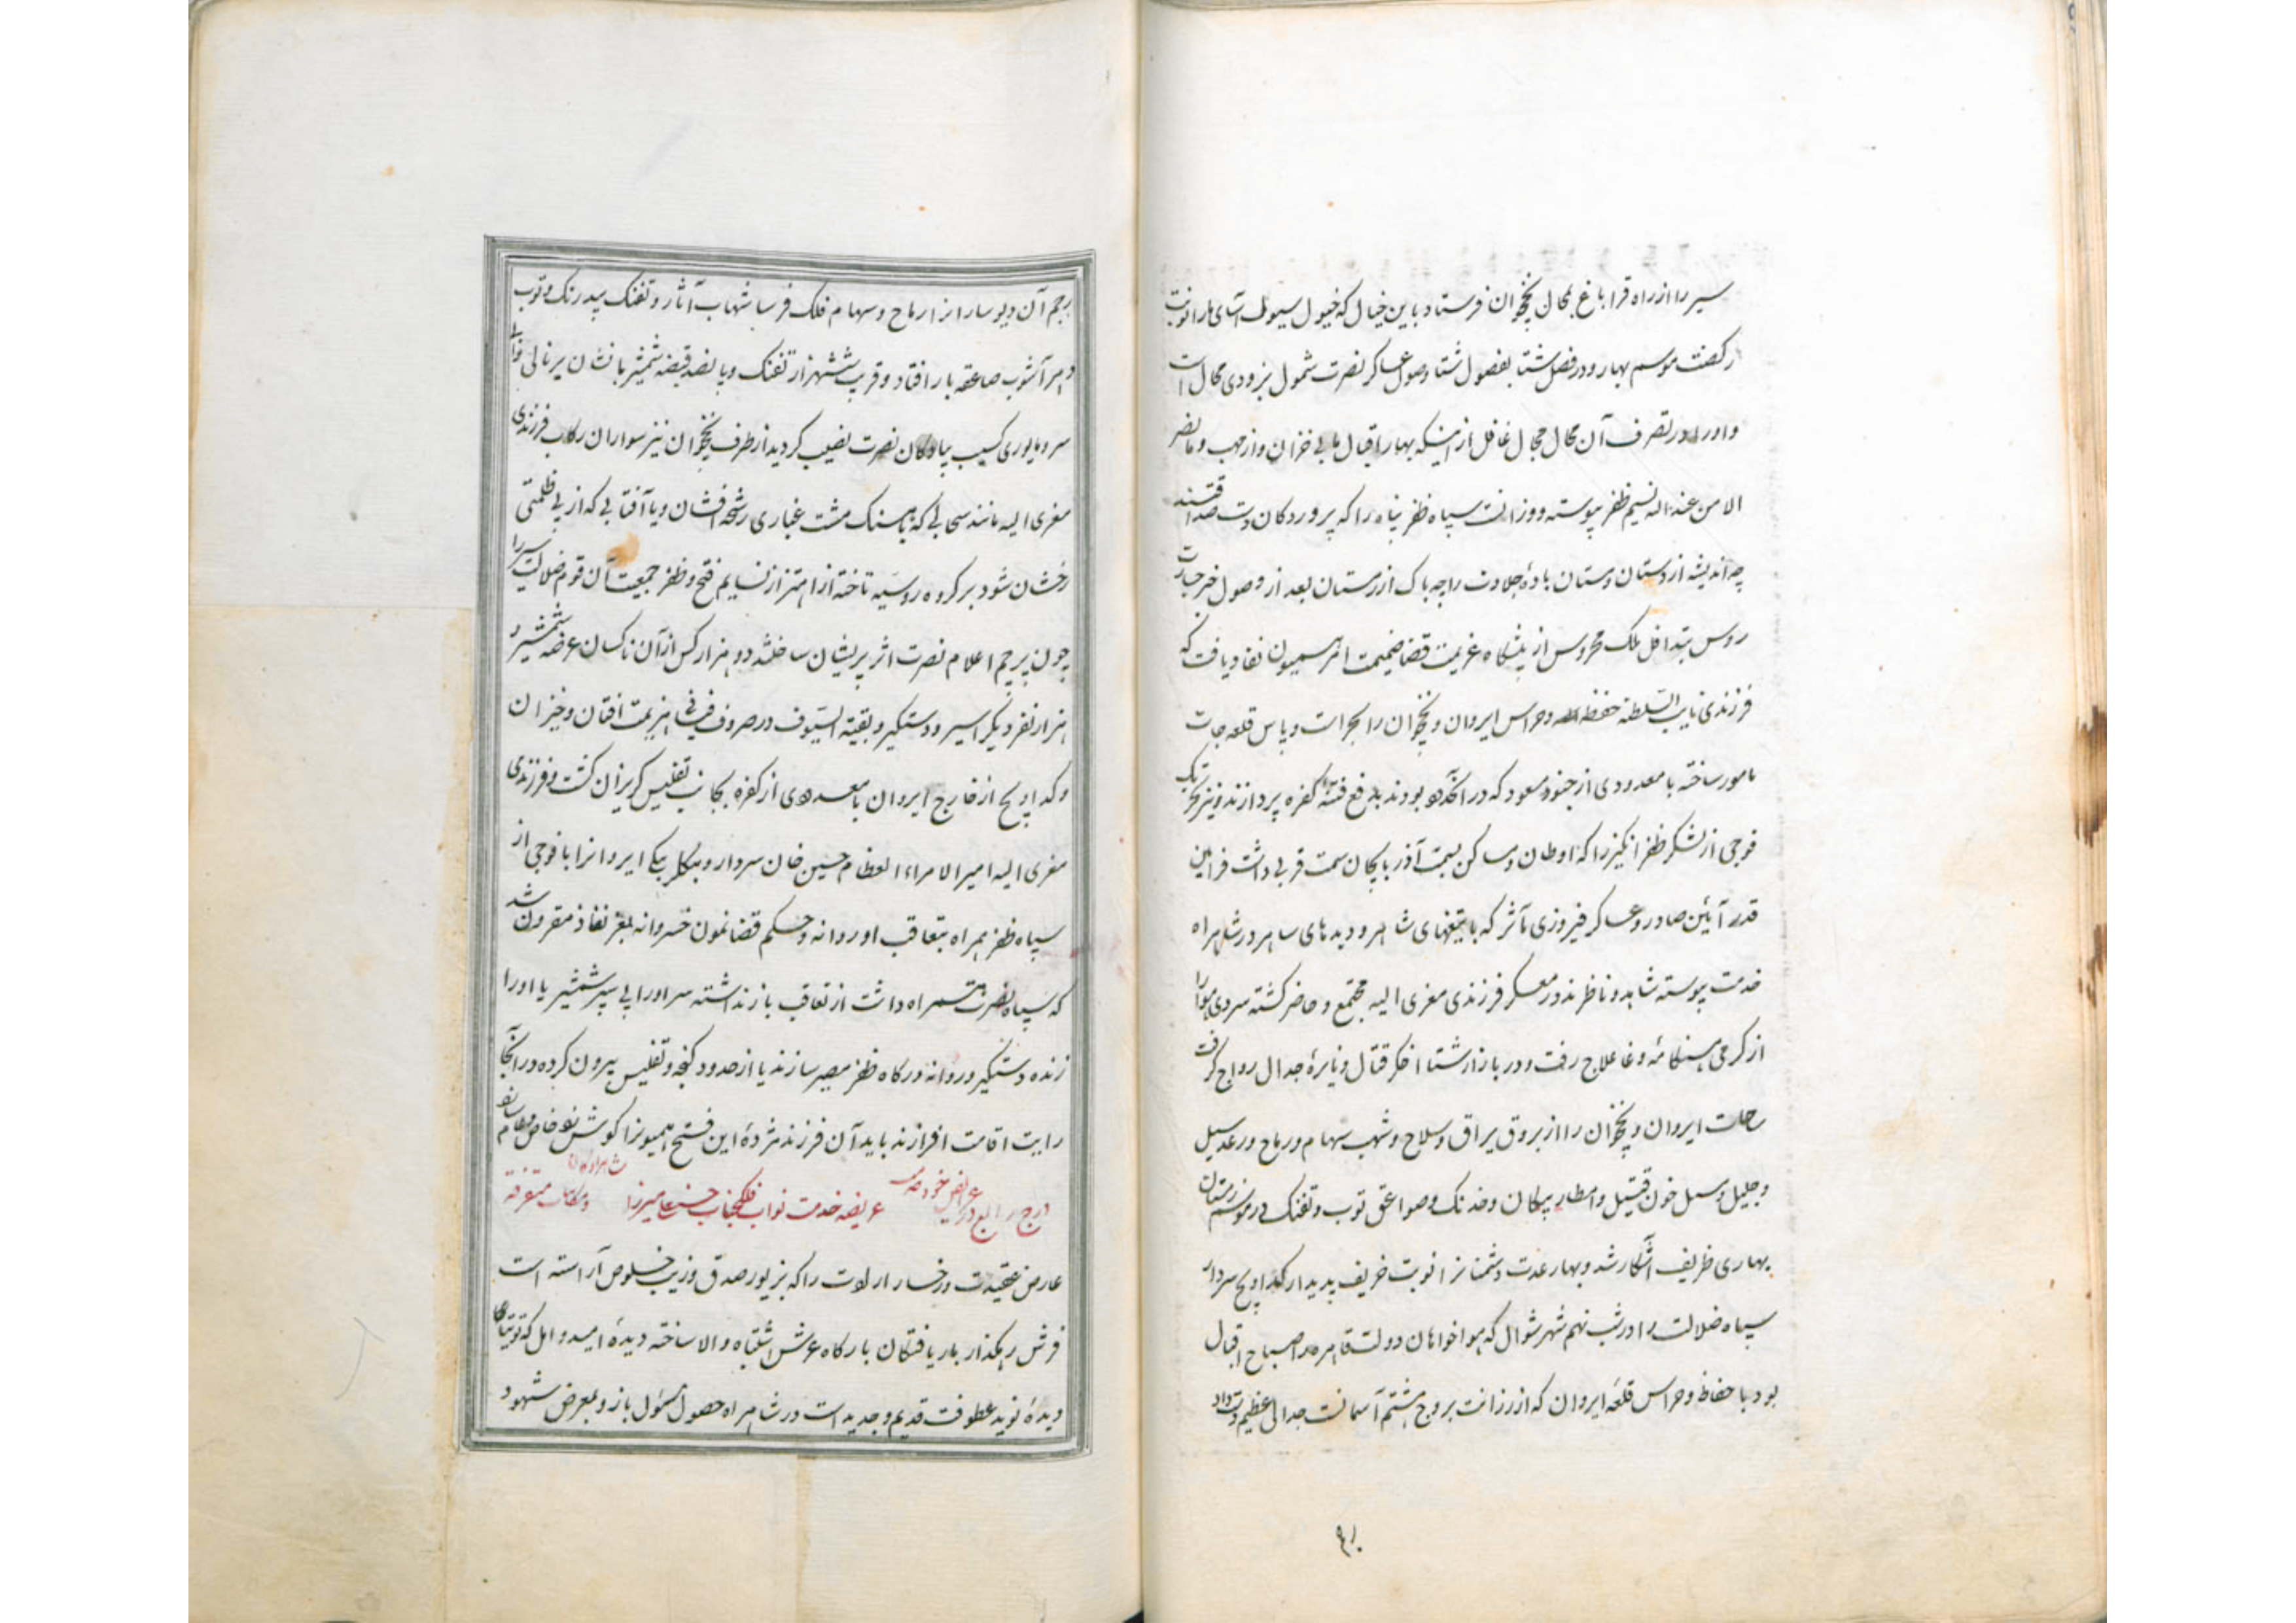 سیر را از راه قراباغ بمحال نخجوان فرستاد باین خیال که خیول سیول آسای ما را نوبت
رکضت موسم بهار و در فصل شتا بفصول شتا وصول عساکر نصرت شمول بزودی محال است
و او را در تصرف آن محال مجال غافل از اینکه بهار اقبال ما بی خزان و از مهب و ما النصر
الا من عند الله نسیم ظفر پیوسته وزانست سپاه ظفر پناه را که پروردکان دست
چه اندیشه از دستان مستان باده جلادت را چه باک از زمستان بعد از وصول خبر جسارت
روس بتداخل ملک محروس از پیشگاه عزیمت قضا ضمیمت امر همیون نفاذ یافت که
فرزندی نایب السلطنه حفظه الله و حراس ایروان و نخجوان را بحراست و پاس قلعه جات
مامور ساخته با معدودی از جنود مسعود که در آنحدود بودند بدفع فتنه کفره پردازند و نیز
فوجی از لشکر ظفر انگیز را که اوطان و مساکن بسمت آذربایجان سمت قربی داشت فرامین
قدر آیین صادر و عساکر فیروزی مآثر که با تیغهای شاهر و دیده های ساهر در شاهراه
خدمت پیوسته شاهد و ناظرند در معسکر فرزندی معزی الیه مجتمع و حاضر کشته سردی هوا را
از کرمی هنکامه وغا علاج رفت و در بازار شتا اخکر قتال و نایره جدال رواج کرفت
ساحات ایروان و نخجوان را از بروق یراق و سلاح و شهب سهام و رماح و رعد سیل
و جلیل و سیل خون قتیل و امطار پیکان و خدنک و صواعق توپ و تفنک در موسم زمستان
بهاری ظریف آشکار شد و بهار عدت دشمنانرا نوبت خریف پدیدار کداویچ سردار
سپاه ضلالت را در شب نهم شهر شوال که هواخواهان دولت قاهره را صباح اقبال
بود با حفاظ و حراس قلعه ایروان که از رزانت بروج هشتم آسمانست جدالی عظیم دست داد
رجم آن دیوسارا نزا رماح و سهام فلک فرسا شهاب آثار و تفنک بیدرنک و توپ
آشوب صاعقه بار افتاد و قریب ششهزار تفنک و پانصد قبضه شمشیر با نشان
سر و مایوری کسیب پیادکان نصرت نصیب کردید از طرف نخجوان نیز سواران رکاب فرزندی
معزی الیه مانند سحابی که بآهنک مشت غباری رشحه افشان و یا آفتابی که از پی ظلمتی
رخشان شود بر کروه روسیه تاخته از اهتزاز نسایم فتح و ظفر جمعیت آن قوم ضلالت سیر را
چون پرچم اعلام نصرت اثر پریشان ساختند دو هزار کس از آن ناکسان عرضه شمشیر و
هزار نفر دیکر اسیر و دستکیر و بقیة السیوف در صروف فیافی هزیمت افتان و خیزان
و کداویچ از خارج ایروان با معدودی از کفره بجانب تفلیس کریزان کشت و فرزندی
معزی الیه امیر الامراء العظام حسین خان سردار و بیکلربیکی ایروانرا با فوجی از
سپاه ظفر همراه بتعاقب او روانه و حکم قضا نمون خسروانه بعز نفاذ مقرون شد
که سپاه نصرت همراه دست از تعاقب باز نداشته سر او را پی سپر شمشیر یا او را
زنده دستکیر و روانه درکاه ظفر مصیر سازند یا از حدود کنجه و تفلیس بیرون کرده در آنجا
رایت اقامت افرازند باید آن فرزند مژده این فتح همیونرا کوشزد خاص و عام
درج رابع در عرایض خود عریضه خدمت نواب فلکجناب حسنعلیمیرزا و مکاتبات متفرقه
عارض عقیدت و رخسار ارادت را که بزیور صدق و زیب خلوص آراسته است
فرش رهکذار بار یافتکان بارکاه عرش اشتباه والا ساخته دیده امید و امل که توتیای
دیده نوید عطوفت قدیم و جدید است در شاهراه حصول مسئول باز و بمعرض شهود
۹۸